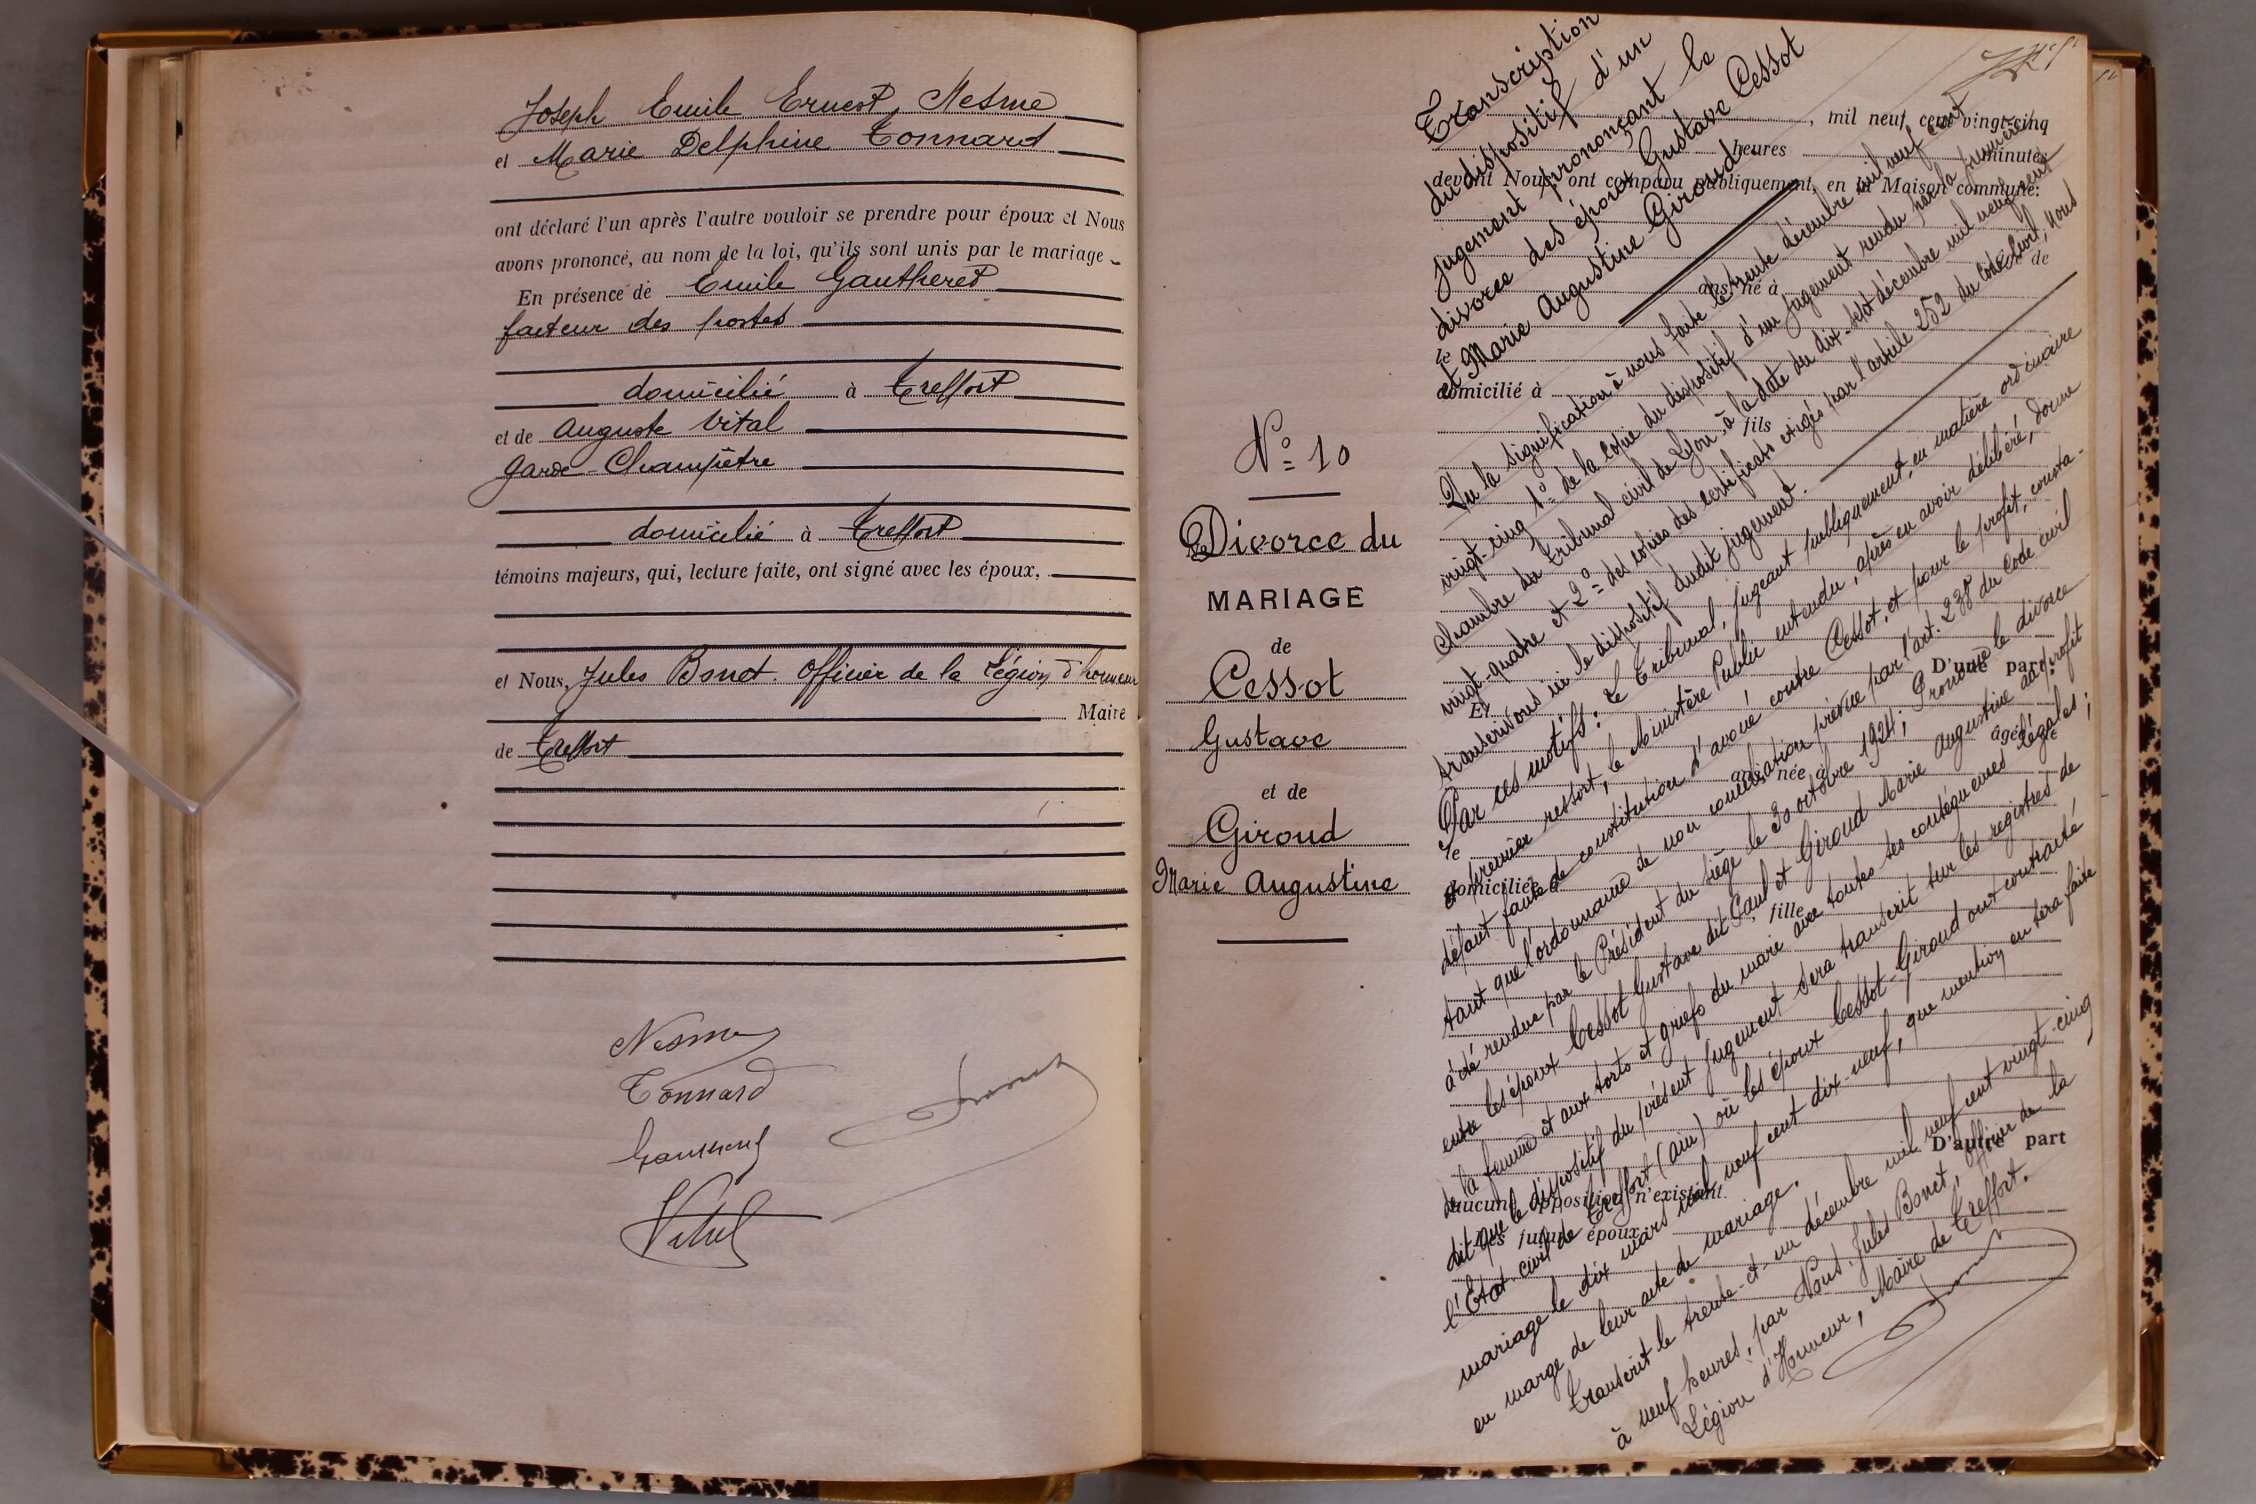 Joseph Emile Ernest Nesme
et Marie Delphine Tonnard
ont déclaré l'un après l'autre vouloir se prendre pour époux et Nous
avons prononcé, au nom de la loi, qu'ils sont unis par le mariage
En présence de Emile Gautheret
facteur des postes
domicilié à Treffort
et de Auguste Vital
Garde-Champêtre
domicilié à Treffort
témoins majeurs, qui, lecture faite, ont signé avec les époux,
et Nous, Jules Bonet. Officier de la Légion d'honneur
Maire
de Treffort
Nesme
Tonnard
Vital
Nº 10
Divorce du
MARIAGE
de
Cessot
Gustave
et de
Giroud
Marie Augustine
Transcription
du dispositif d'un
jugement prononçant le
divorce des époux Gustave Cessot
et Marie Augustine Giroud.
, mil neuf cent vingt-cinq
heures minutes
devant Nous ont comparu publiquement, en la Maison commune:
ans, né à
le
domicilié à
fils
D'une part
Et
âgée de
ans, née à
le
domiciliée à
fille
D'autre part
aucune opposition n'existant.
futurs époux
Vu la signification à nous faite le trente décembre mil neuf cent
vingt-cinq 1º de la copie du dispositif d'un jugement rendu par la première
Chambre du Tribunal civil de Lyon, à la date du dix-sept décembre mil neuf cent
vingt-quatre et 2º des copies des certificats exigés par l'article 252 du Code civil, nous
transcrivons ici le dispositif dudit jugement.
Par ces motifs: Le Tribunal, jugeant publiquement, en matière ordinaire
et premier ressort, le Ministère Public entendu, après en avoir délibéré, donne
défaut faute de constitution d'avoué contre Cessot, et pour le profit, consta-
tant que l'ordonnance de non conciliation prévue par l'art. 238 du Code civil
a été rendue par le Président du siège le 30 octobre 1924; Prononce le divorce
entre les époux Cessot Gustave dit Paul et Giroud Marie Augustine au profit
de la femme et aux torts et griefs du mari avec toutes ses conséquences légales;
dit que le dispositif du présent jugement sera transcrit sur les registres de
l'Etat civil de Treffort (Ain) où les époux Cessot-Giroud ont contracté
mariage le dix mars mil neuf cent dix-neuf, que mention en sera faite
en marge de leur acte de mariage.
Transcrit le trente-et-un décembre mil neuf cent vingt-cinq
à neuf heures, par Nous Jules Bonet, Officier de la
Légion d'Honneur, Maire de Treffort.